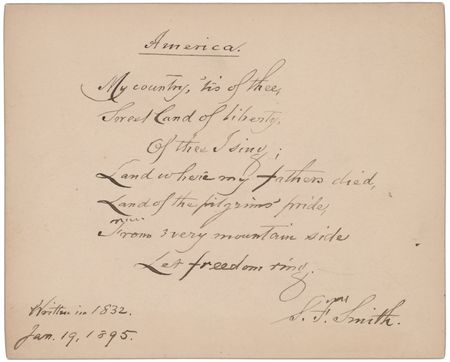 America.
My country, 'tis of thee,
Sweet Land of liberty,
Of thee I sing;
Land where my fathers died,
Land of the pilgrims' pride,
From every mountain side
Let freedom ring.
Written in 1832.
Jan. 19, 1895.
S. F. Smith.